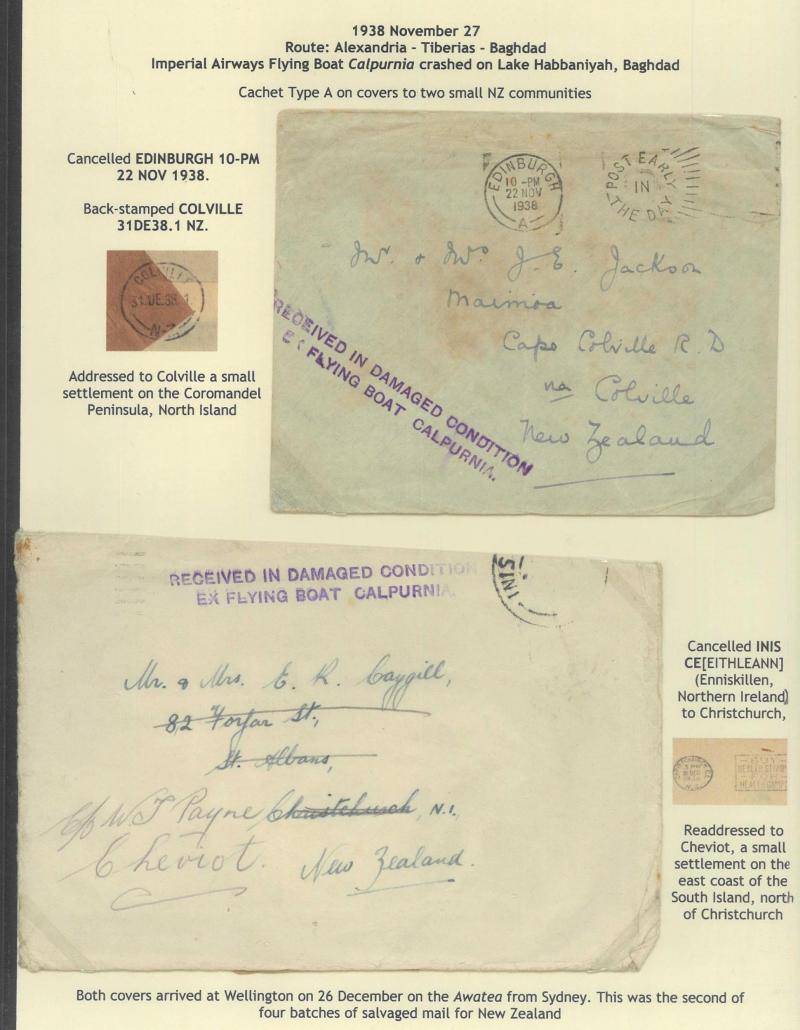 1938 November 27
Route: Alexandria - Tiberias - Baghdad
Imperial Airways Flying Boat Calpurnia crashed on Lake Habbaniyah, Baghdad
Cachet Type A on covers to two small NZ communities
Cancelled EDINBURGH 10-PM
22 NOV 1938.
Back-stamped COLVILLE
31DE38.1 NZ.
COLVILLE
31 DE.38 1
N.Z
Addressed to Colville a small
settlement on the Coromandel
Peninsula, North Island
EDINBURGH
10 -PM
22 NOV
1938
A
POST EARLY
IN
THE DAY
Mr. & Mrs J. E. Jackson
Maimoa
Cape Colville R. D
na Colville
New Zealand
RECEIVED IN DAMAGED CONDITION
EX FLYING BOAT CALPURNIA.
RECEIVED IN DAMAGED CONDITION
EX FLYING BOAT CALPURNIA.
INIS
Mr. & Mrs. E. R. Caygill,
82 Forfar St.,
St. Albans,
c/o W J Payne Christchurch, N.I.,
Cheviot. New Zealand.
Cancelled INIS
CE[EITHLEANN]
(Enniskillen,
Northern Ireland)
to Christchurch,
HEALTH STAMPS
HEALTH CAMPS
Readdressed to
Cheviot, a small
settlement on the
east coast of the
South Island, north
of Christchurch
Both covers arrived at Wellington on 26 December on the Awatea from Sydney. This was the second of
four batches of salvaged mail for New Zealand